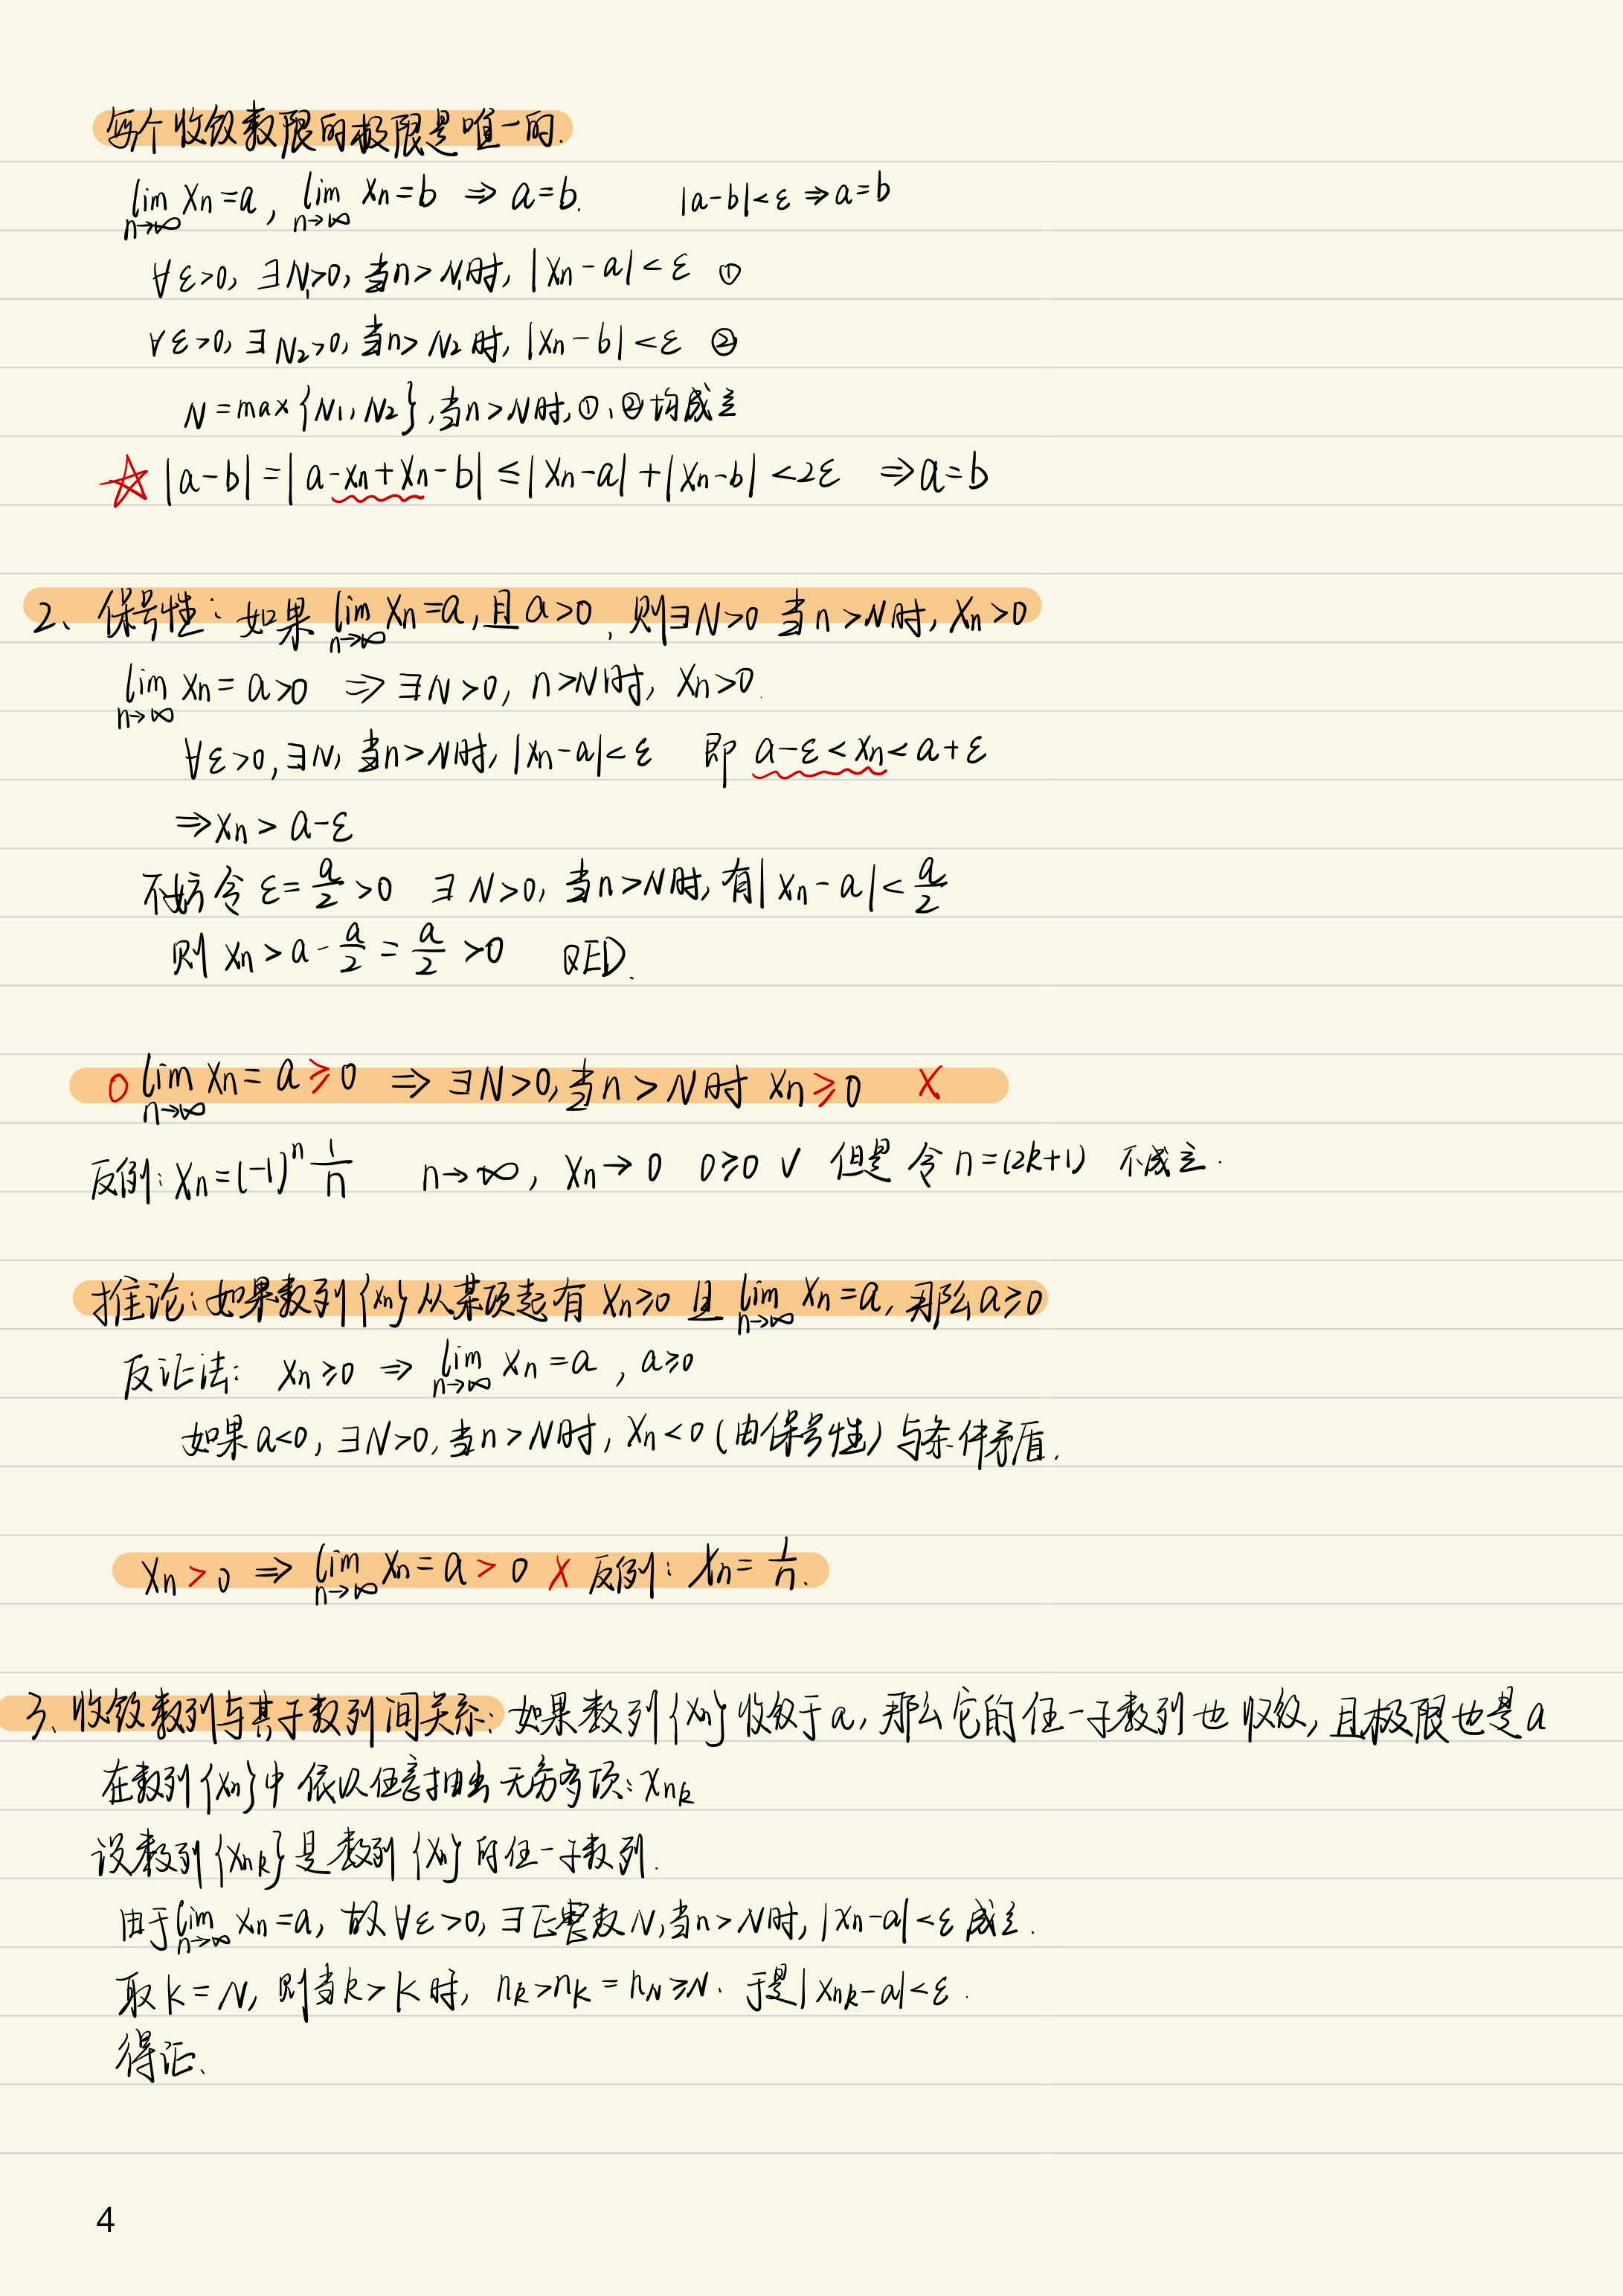 每个收敛数限的极限是唯一的.
lim n→∞ xn=a, lim n→∞ xn=b ⇒ a=b. |a-b|<ε ⇒ a=b
∀ε>0, ∃N₁>0, 当n>N₁时, |xn-a|<ε ①
∀ε>0, ∃N₂>0, 当n>N₂时, |xn-b|<ε ②
N=max{N₁, N₂}, 当n>N时, ①、②均成立
☆ |a-b|=|a-xn+xn-b|≤|xn-a|+|xn-b|<2ε ⇒a=b
2、保号性: 如果 lim n→∞ xn=a, 且a>0, 则∃N>0 当n>N时, xn>0
lim n→∞ xn=a>0 ⇒ ∃N>0, n>N时, xn>0.
∀ε>0, ∃N, 当n>N时, |xn-a|<ε 即 a-ε<xn<a+ε
⇒xn>a-ε
不妨令 ε=a/2>0 ∃N>0, 当n>N时, 有|xn-a|<a/2
则 xn>a-a/2=a/2>0 QED.
○ lim n→∞ xn=a≥0 ⇒ ∃N>0, 当n>N时 xn≥0 X
反例: xn=(-1)ⁿ 1/n n→∞, xn→0 0≥0 √ 但是 令n=(2k+1) 不成立.
推论: 如果数列{xn}从某项起有 xn≥0 且 lim n→∞ xn=a, 那么a≥0
反证法: xn≥0 ⇒ lim n→∞ xn=a, a≥0
如果a<0, ∃N>0, 当n>N时, xn<0 (由保号性) 与条件矛盾.
xn>0 ⇒ lim n→∞ xn=a>0 X 反例: xn=1/n.
3、收敛数列与其子数列间关系: 如果数列{xn}收敛于a, 那么它的任一子数列也收敛, 且极限也是a
在数列{xn}中 依次任意抽出无穷多项: xnk
设数列{xnk}是数列{xn}的任一子数列.
由于lim n→∞ xn=a, 故∀ε>0, ∃正整数N, 当n>N时, |xn-a|<ε成立.
取K=N, 则当k>K时, nk>nK=nN≥N. 于是|xnk-a|<ε.
得证、
4